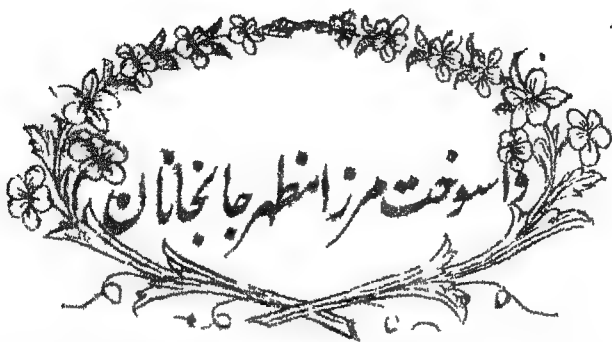 واسوخت مرزا مظہر جانجاناں